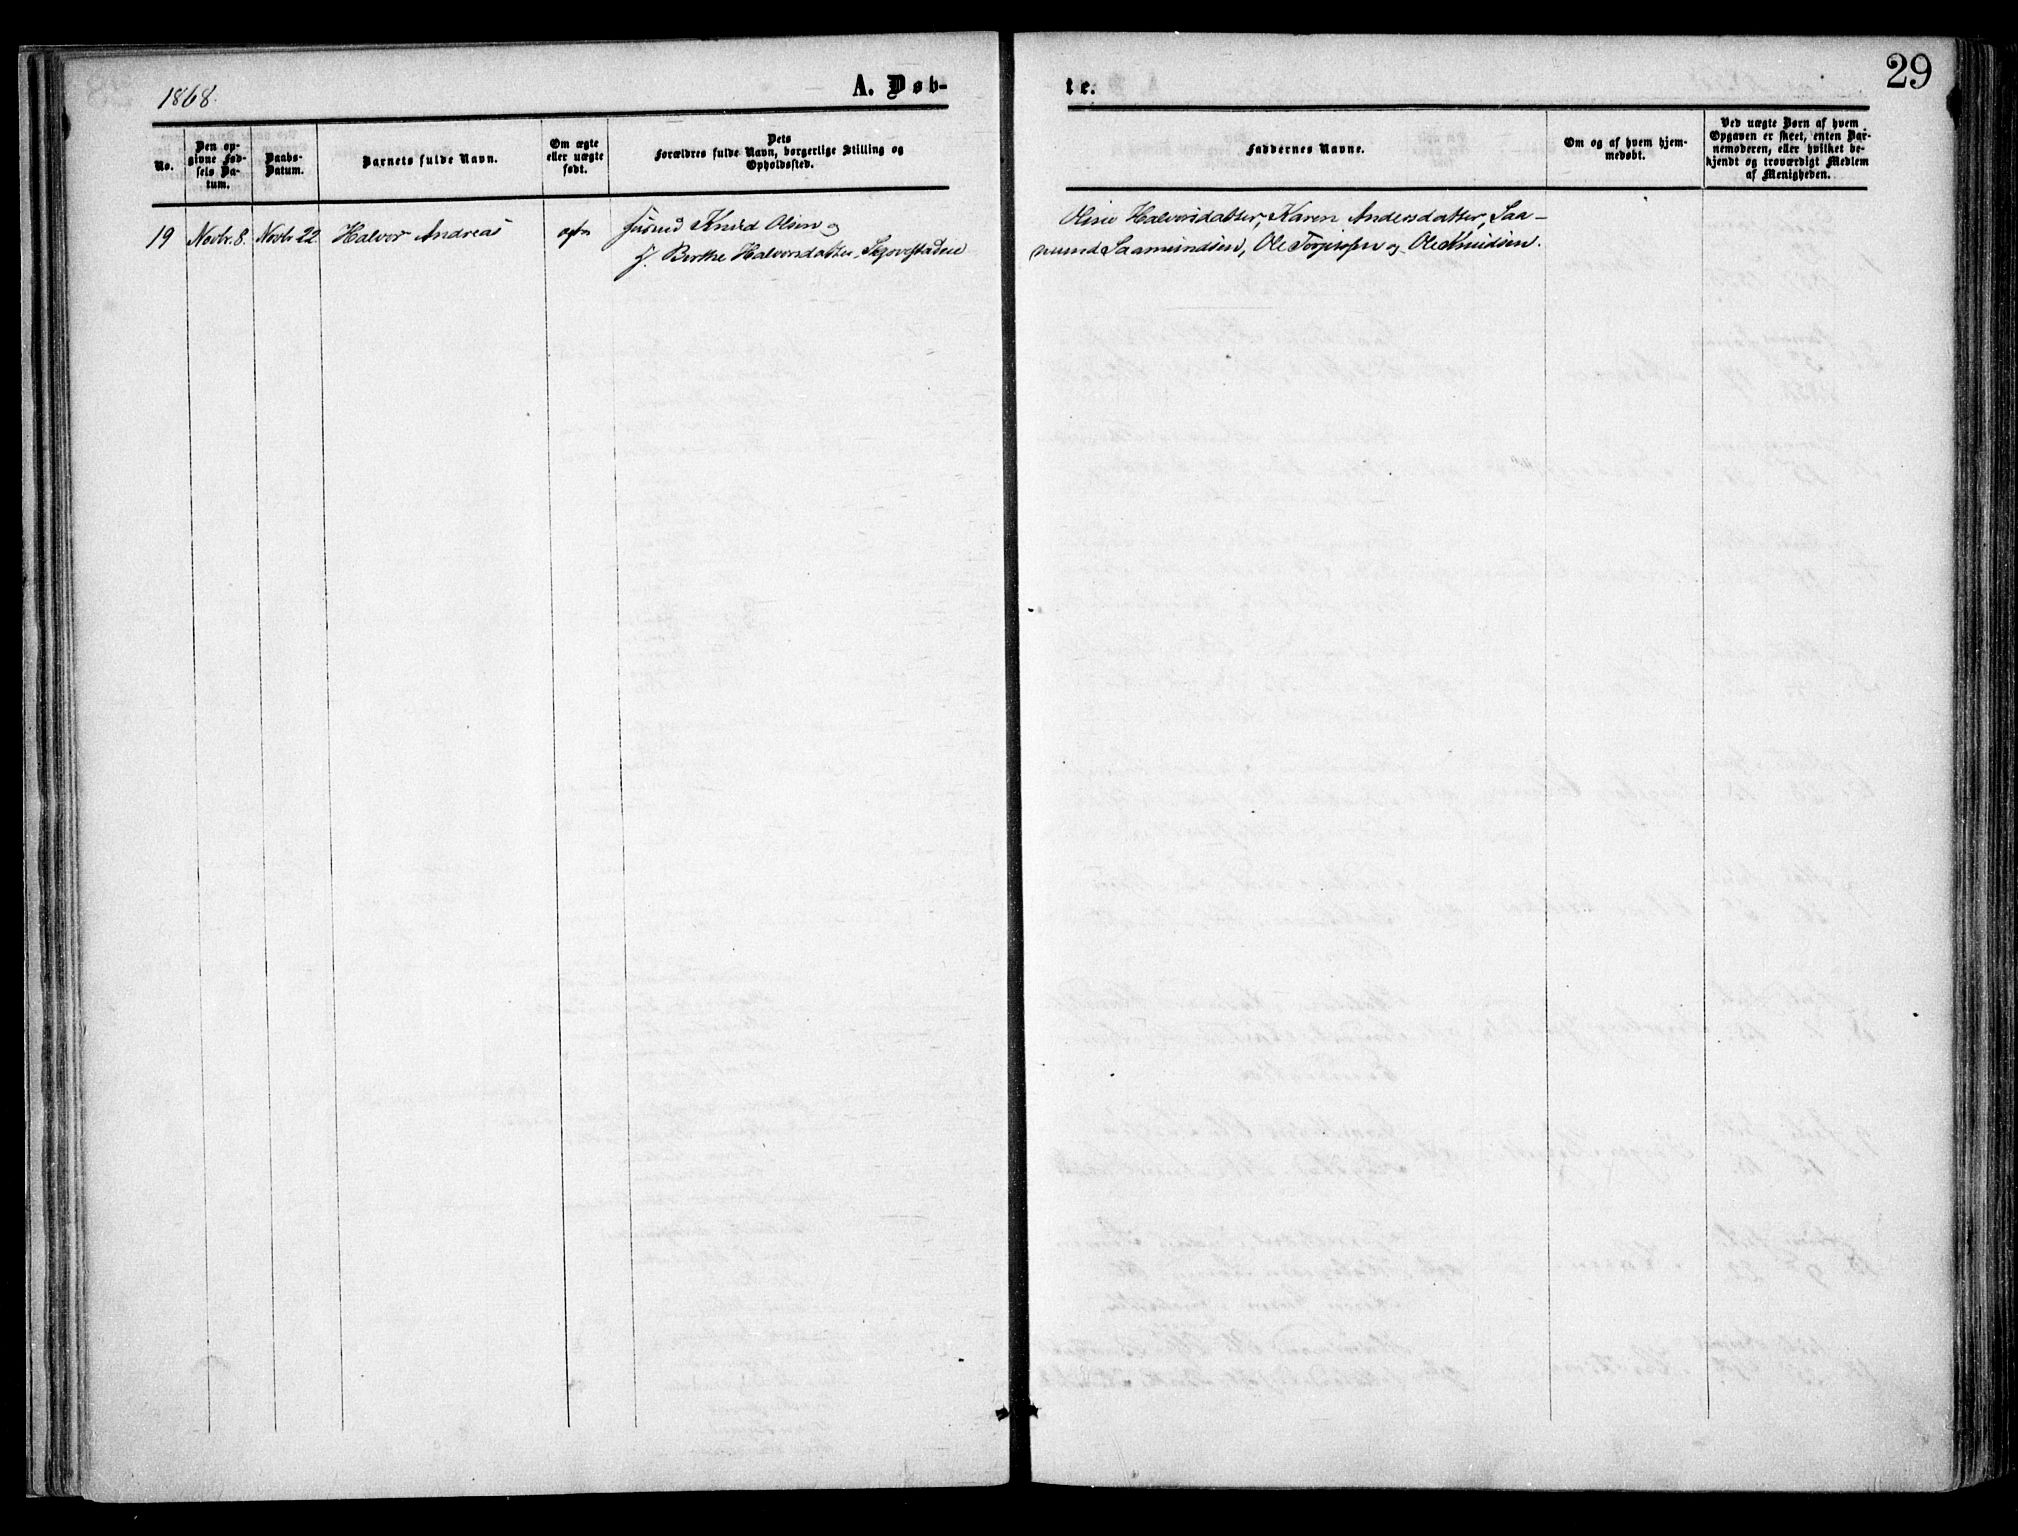 29
1868.
A. Døb-
te.
No.
Den op-
givne Fød-
sels Da-
tum.
Daabs-
Datum.
Barnets fulde Navn.
Om ægte
eller uægte
født.
Dets
Forældres fulde Navn, borgerlige Stilling og
Opholdssted.
Faddernes Navne.
Om og af hvem hjem-
medøbt.
Ved uægte Børn af hvem
Opgaven er skeet, enten Bar-
nemoderen, eller hvilket be-
kjendt og troværdigt Medlem
af Menigheden.
19 Novbr. 8. Novbr. 22 Halvor Andreas
Knud Olsen og
Berthe Halvorsdatter
Oline Halvorsdatter, Karen Andersdatter, Saa-
mund Saamundsen, Ole Torjussen og Ole Knudsen.